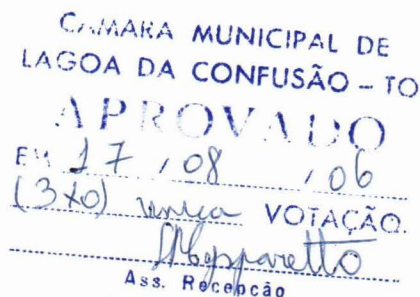 CAMARA MUNICIPAL DE
LAGOA DA CONFUSÃO – TO
APROVADO
EM 17 / 08 / 06
(3x0) unica VOTAÇÃO.
Ass. Recepção